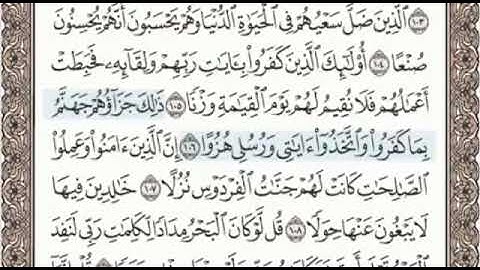 ١٠٣ ٱلَّذِينَ ضَلَّ سَعْيُهُمْ فِى ٱلْحَيَوٰةِ ٱلدُّنْيَا وَهُمْ يَحْسَبُونَ أَنَّهُمْ يُحْسِنُونَ
صُنْعًا ١٠٤ أُو۟لَٰٓئِكَ ٱلَّذِينَ كَفَرُوا۟ بِـَٔايَٰتِ رَبِّهِمْ وَلِقَآئِهِۦ فَحَبِطَتْ
أَعْمَٰلُهُمْ فَلَا نُقِيمُ لَهُمْ يَوْمَ ٱلْقِيَٰمَةِ وَزْنًا ١٠٥ ذَٰلِكَ جَزَآؤُهُمْ جَهَنَّمُ
بِمَا كَفَرُوا۟ وَٱتَّخَذُوٓا۟ ءَايَٰتِى وَرُسُلِى هُزُوًا ١٠٦ إِنَّ ٱلَّذِينَ ءَامَنُوا۟ وَعَمِلُوا۟
ٱلصَّٰلِحَٰتِ كَانَتْ لَهُمْ جَنَّٰتُ ٱلْفِرْدَوْسِ نُزُلًا ١٠٧ خَٰلِدِينَ فِيهَا
لَا يَبْغُونَ عَنْهَا حِوَلًا ١٠٨ قُل لَّوْ كَانَ ٱلْبَحْرُ مِدَادًا لِّكَلِمَٰتِ رَبِّى لَنَفِدَ